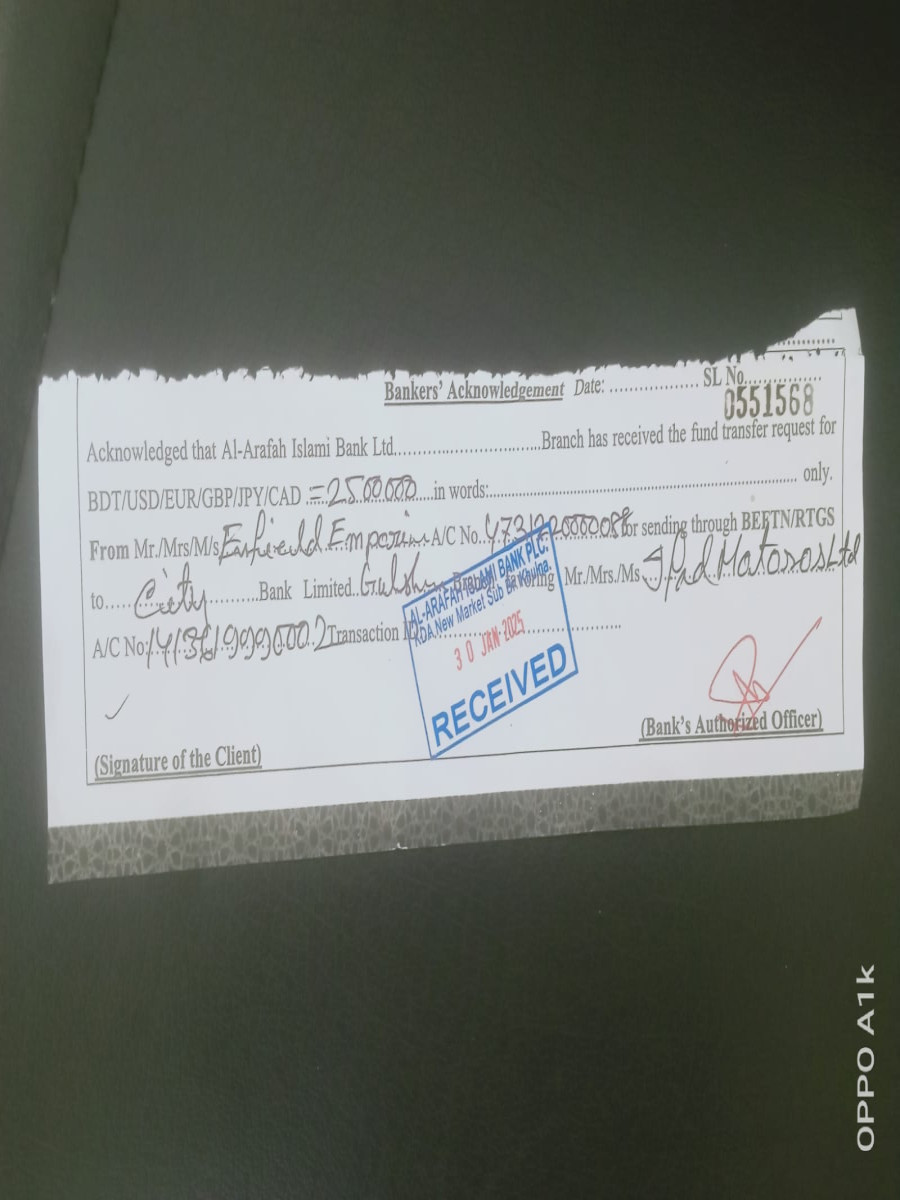 Bankers' Acknowledgement Date: .................. SL No...............
0551568
Acknowledged that Al-Arafah Islami Bank Ltd..............................Branch has received the fund transfer request for
BDT/USD/EUR/GBP/JPY/CAD =2500000 in words:.......................................................................... only.
From Mr./Mrs/M/s Enfield Emporium A/C No. for sending through BEFTN/RTGS
to..... City ..........Bank Limited.. Gulshan Branch Mr./Mrs./Ms Ltd
A/C No: Transaction ID...............................................
AL-ARAFAH ISLAMI BANK PLC.
KDA New Market Sub Br. Khulna.
30 JAN 2025
RECEIVED
(Signature of the Client)
(Bank's Authorized Officer)
OPPO A1k